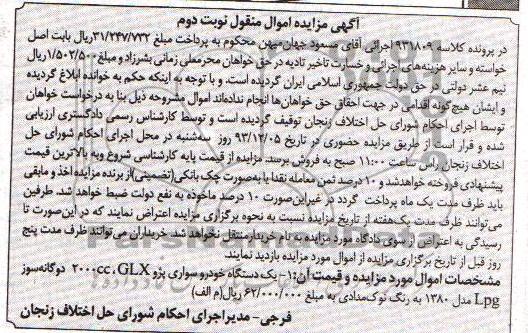 آگهی مزایده اموال منقول نوبت دوم
در پرونده کلاسه ۹۳۱۸۰۹ اجرائی آقای مسعود جهان میهن محکوم به پرداخت مبلغ ۳۱/۲۴۷/۷۳۲ریال بابت اصل
خواسته و سایر هزینه‌های اجرائی و خسارت تاخیر تادیه در حق خواهان محرمعلی زمانی بشرزاد و مبلغ ۱/۵۰۲/۵۰۰ریال
نیم عشر دولتی در حق دولت جمهوری اسلامی ایران گردیده است. و با توجه به اینکه حکم به خوانده ابلاغ گردیده
و ایشان هیچ‌گونه اقدامی در جهت احقاق حق خواهان‌ها انجام نداده‌اند اموال مشروحه ذیل بنا به درخواست خواهان
توسط اجرای احکام شورای حل اختلاف زنجان توقیف گردیده است و توسط کارشناس رسمی دادگستری ارزیابی
شده و قرار است از طریق مزایده حضوری در تاریخ ۹۳/۱۲/۰۵ روز سه‌شنبه در محل اجرای احکام شورای حل
اختلاف زنجان راس ساعت ۱۱:۰۰ صبح به فروش برسد. مزایده از قیمت پایه کارشناسی شروع و به بالاترین قیمت
پیشنهادی فروخته خواهدشد و ۱۰ درصد ثمن معامله نقدا یا به‌صورت چک بانکی(تضمینی)از برنده مزایده اخذ و مابقی
باید ظرف مدت یک ماه پرداخت گردد در غیراین‌صورت ۱۰ درصد ماخوذه به نفع دولت ضبط خواهد شد. طرفین
می‌توانند ظرف مدت یک‌هفته از تاریخ مزایده نسبت به نحوه برگزاری مزایده اعتراض نمایند که در این‌صورت تا
رسیدگی به اعتراض از سوی دادگاه مورد مزایده به نام خریدار منتقل نخواهد شد. خریداران می‌توانند ظرف مدت پنج
روز قبل از تاریخ برگزاری مزایده از اموال مورد مزایده بازدید نمایند
مشخصات اموال مورد مزایده و قیمت آن:۱- یک دستگاه خودرو سواری پژو GLX، ۲۰۰۰cc دوگانه‌سوز
Lpg مدل ۱۳۸۰ به رنگ نوک‌مدادی به مبلغ ۶۲/۰۰۰/۰۰۰ ریال(م الف)
فرجی- مدیر اجرای احکام شورای حل اختلاف زنجان